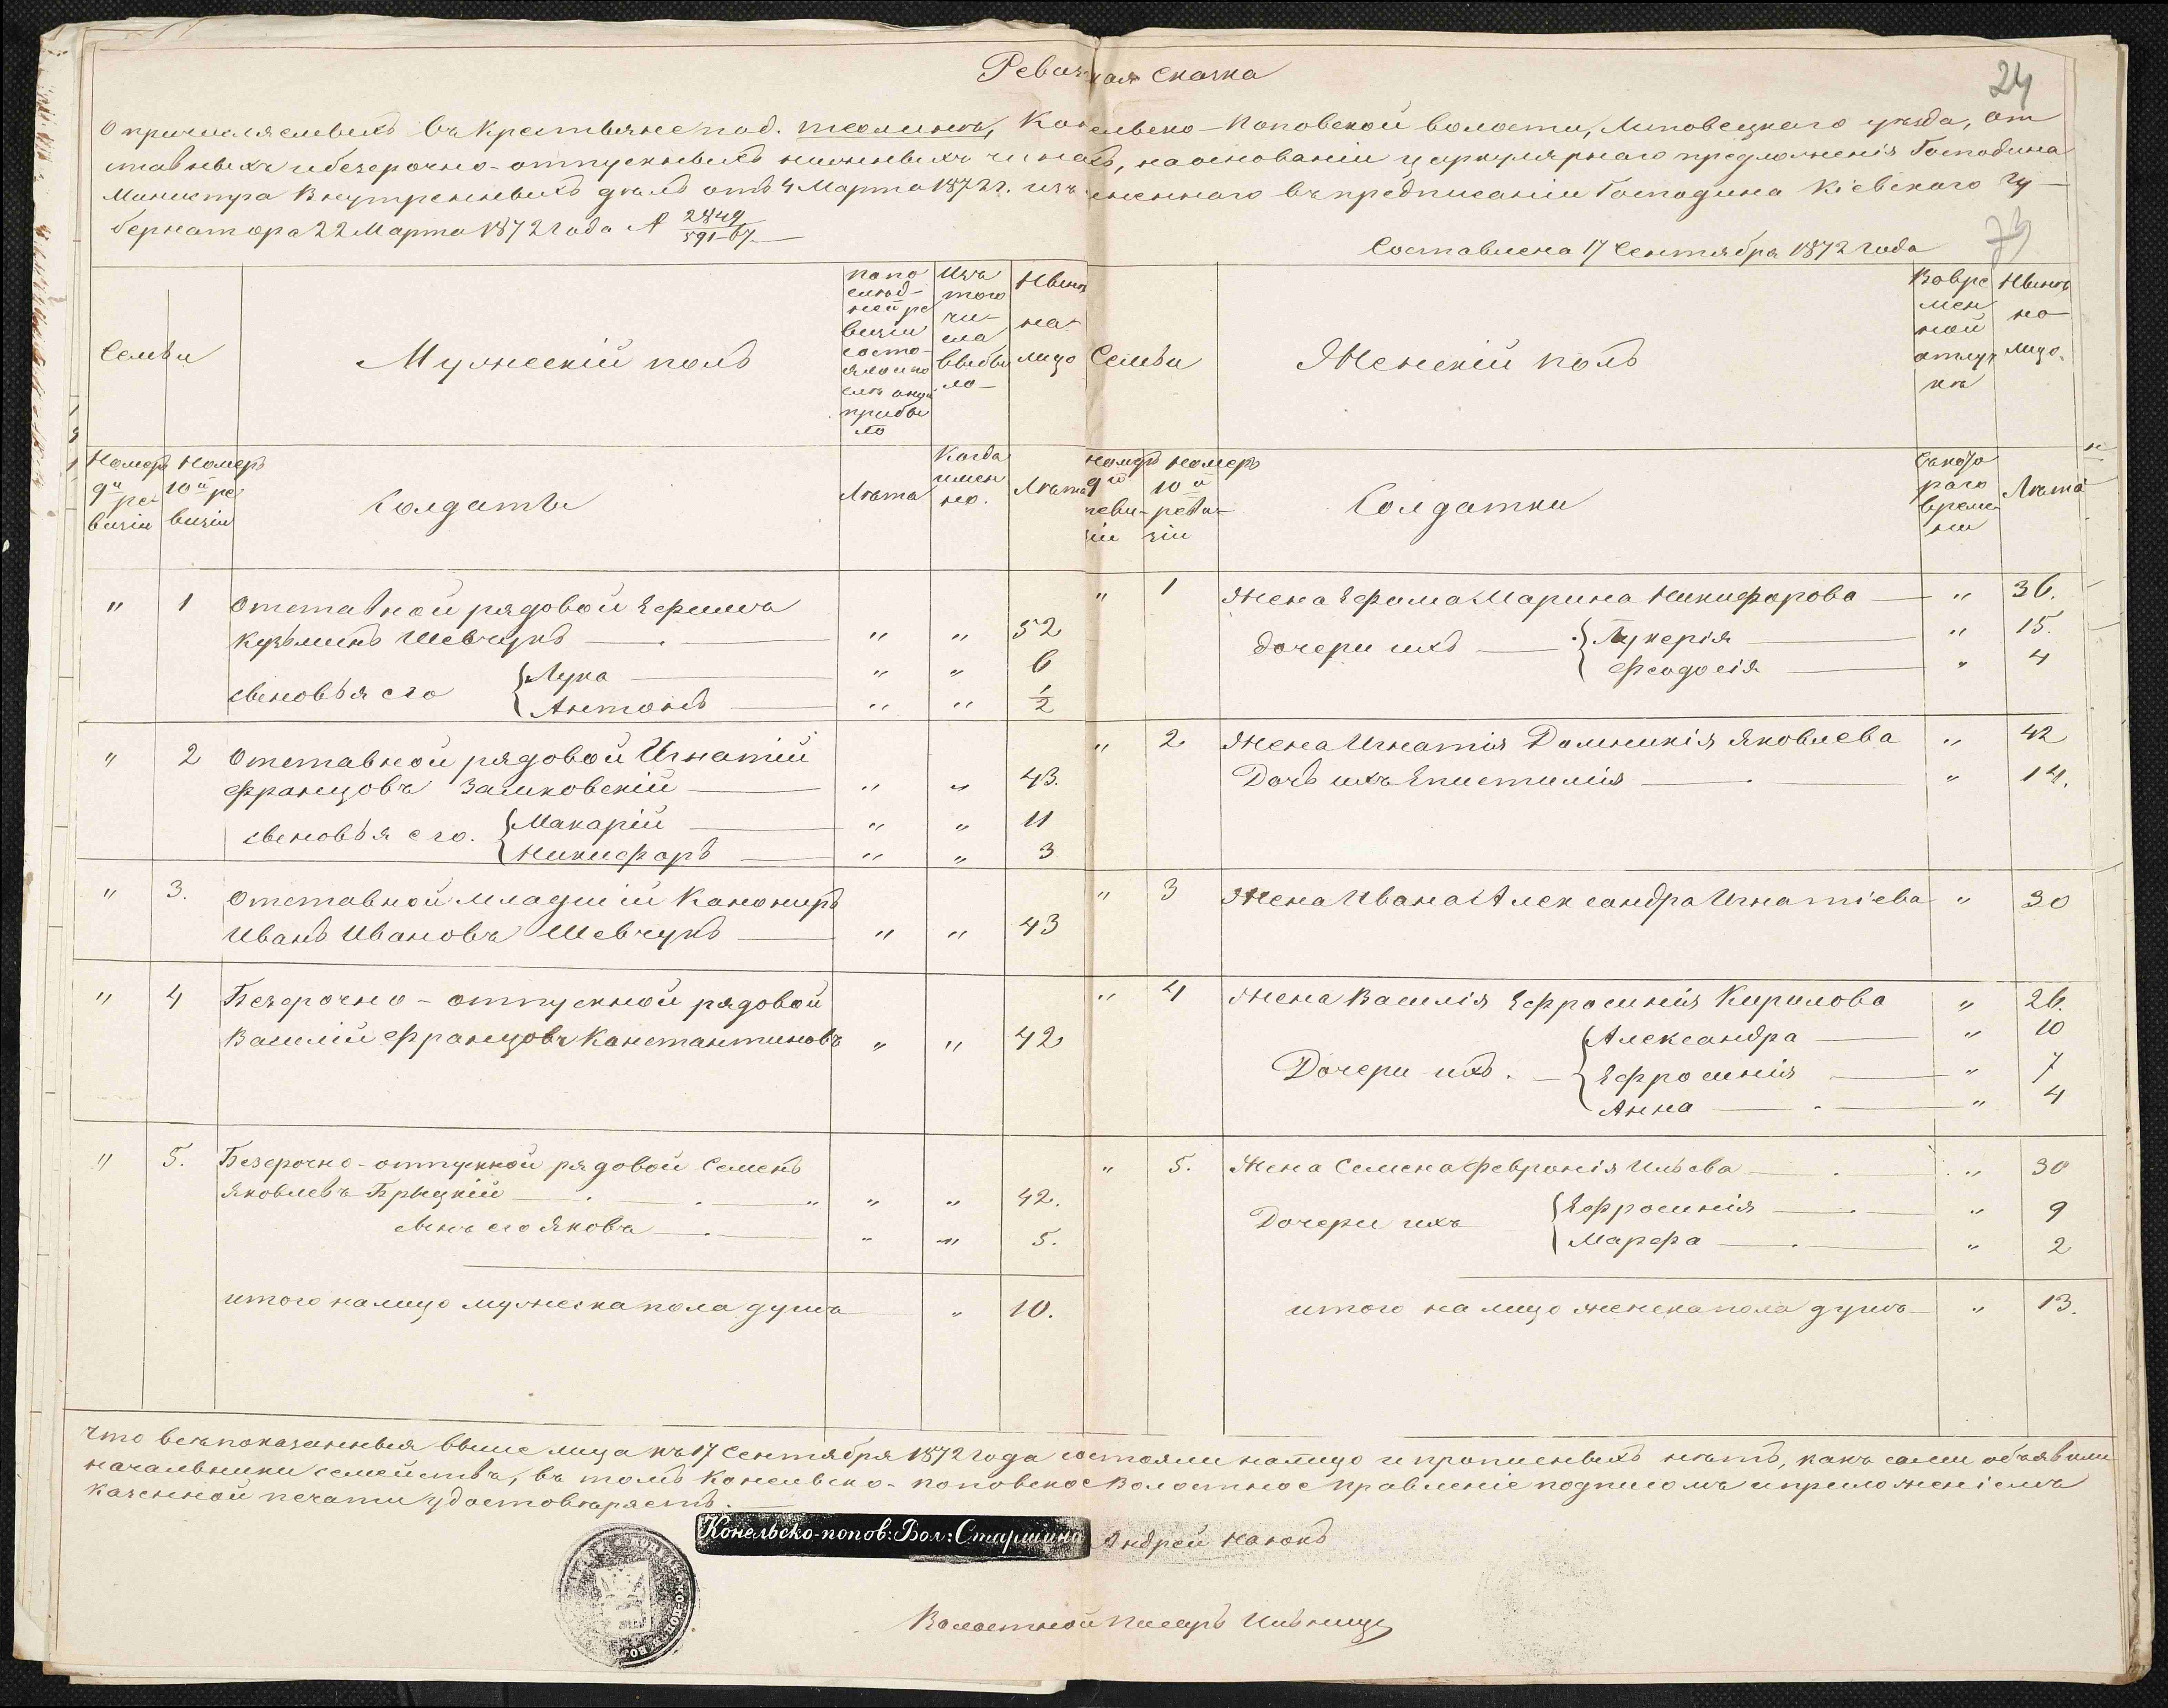 Ревизская Сказка
24
О причисляемыхъ въ крестьяне под. Теолинъ, Конельско-Поповской волости, Липовецкаго уѣзда, от
ставныхъ и безсрочно-отпускныхъ нижныхъ чинахъ, на основаніи циркулярнаго предложенія Господина
Министра Внутренныхъ дѣлъ отъ 4 Марта 1872 г. изъясненнаго въ предписаніи Господина Кіевскаго Гу-
бернатора 22 Марта 1872 года № 2849/591-67
73
Составлена 17 Сентября 1872 года
Семьи
Мужескій полъ
Попо
слѣд-
ней ре
визіи
состо-
яло и по
слѣ оной
прибы
ло
Изъ
того
чи-
сла
выбы
ло
Нынѣ
на-
лицо
Семьи
Женскій полъ
Вовре
мен
ной
отлуч
кѣ
Нынѣ
на-
лицо.
Номеръ
9й ре-
визіи
Номеръ
10й ре
визіи
Солдаты
Лѣта
Когда
имен
но.
Лѣта
Номеръ
9й
реви-
зіи
Номеръ
10й
реви-
зіи
Солдатки
Съ кото
раго
време-
ни
Лѣта
" 1 Отставной рядовой Ефимъ
Кузьминъ Шевчукъ " " 52
сыновья его { Лука " " 6
Антонъ " " 1/2
" 1 Жена Ефима Марина Никифорова " 36.
дочери ихъ { Лукерія " 15.
Феодосія " 4
" 2 Отставной рядовой Игнатій
Францовъ Заиковскій " " 43.
сыновья его. { Макарій " " 11
Никифоръ " " 3
" 2 Жена Игнатія Домникія Яковлева " 42
Дочь ихъ Епистимія " 14.
" 3. Отставной младшій Канониръ
Иванъ Ивановъ Шевчукъ " " 43
" 3 Жена Ивана Александра Игнатіева " 30
" 4 Безсрочно-отпускной рядовой
Василій Францовъ Константиновъ " " 42
" 4 Жена Василія Ефросинія Кирилова " 26.
Дочери ихъ. { Александра " 10
Ефросинія " 7
Анна " 4
" 5. Безсрочно-отпускной рядовой Семенъ
Яковлевъ Брыцкій " " " 42.
сынъ его Яковъ " " 5.
" 5. Жена Семена Февронія Ильева " 30
Дочери ихъ { Ефросинія " 9
Марфа " 2
итого налицо мужеска пола душъ " 10.
итого налицо женска пола душъ " 13.
Что всѣ показанныя выше лица къ 17 Сентября 1872 года состояли налицо и прописныхъ нѣтъ, какъ сами объявили
начальники семействъ, въ томъ Конельско-Поповское Волостное Правленіе подписомъ и приложеніемъ
казенной печати удостовѣряетъ.
Конельско-попов: Вол: Старшина Андрей
Волостной Писарь